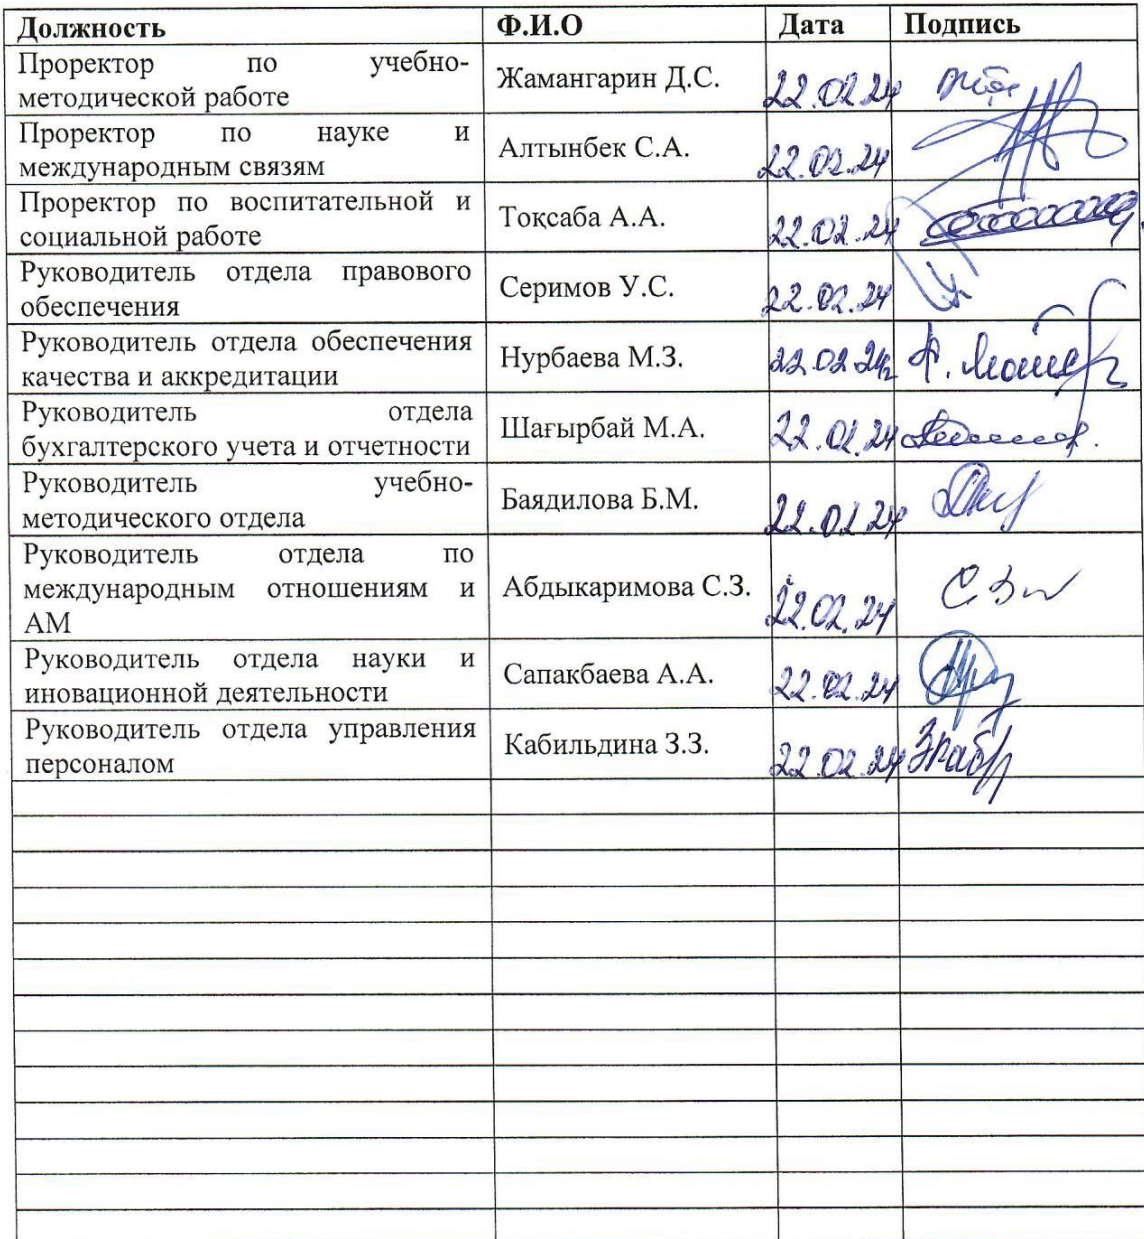 Должность Ф.И.О Дата Подпись
Проректор по учебно-
методической работе Жамангарин Д.С. 22.02.24
Проректор по науке и
международным связям Алтынбек С.А. 22.02.24
Проректор по воспитательной и
социальной работе Тоқсаба А.А. 22.02.24
Руководитель отдела правового
обеспечения Серимов У.С. 22.02.24
Руководитель отдела обеспечения
качества и аккредитации Нурбаева М.З. 22.02.24
Руководитель отдела
бухгалтерского учета и отчетности Шағырбай М.А. 22.02.24
Руководитель учебно-
методического отдела Баядилова Б.М. 22.02.24
Руководитель отдела по
международным отношениям и
АМ Абдыкаримова С.З. 22.02.24
Руководитель отдела науки и
иновационной деятельности Сапакбаева А.А. 22.02.24
Руководитель отдела управления
персоналом Кабильдина З.З. 22.02.24